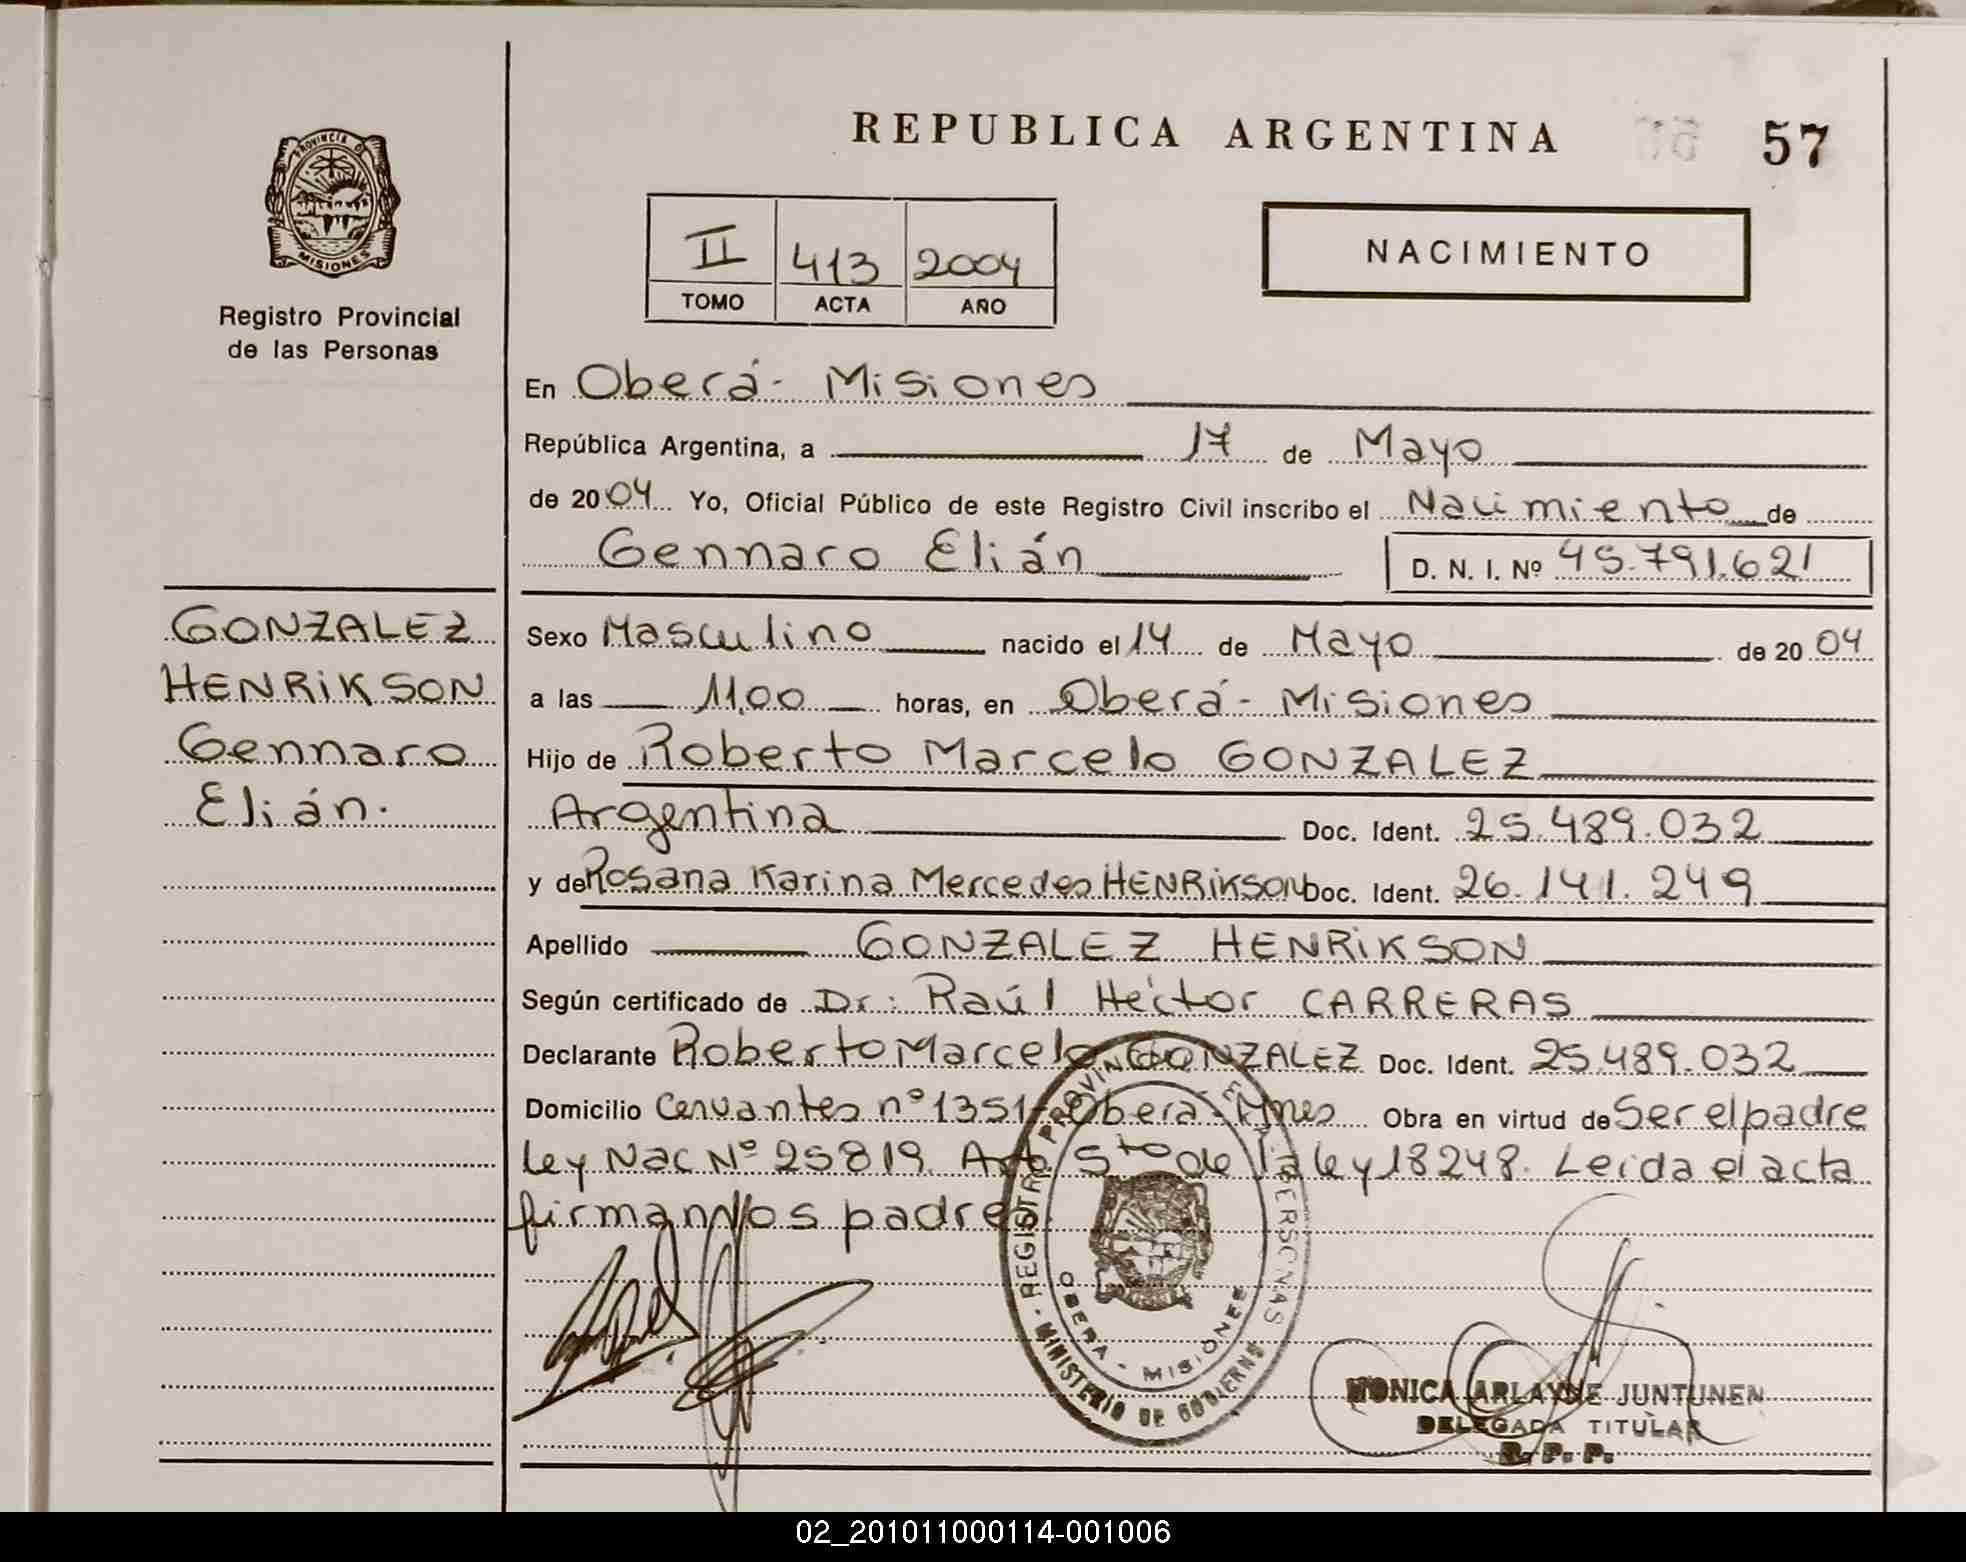 REPUBLICA ARGENTINA
57
PROVINCIA D
MISIONES
Registro Provincial
de las Personas
II 413 2004
TOMO ACTA AÑO
NACIMIENTO
En Oberá - Misiones
República Argentina, a 17 de Mayo
de 2004 Yo, Oficial Público de este Registro Civil inscribo el Nacimiento de
Gennaro Elián D. N. I. Nº 45.791.621
GONZALEZ
HENRIKSON
Gennaro
Elián.
Sexo Masculino nacido el 14 de Mayo de 2004
a las 11,00 horas, en Oberá - Misiones
Hijo de Roberto Marcelo GONZALEZ
Argentina Doc. Ident. 25.489.032
y de Rosana Karina Mercedes HENRIKSON Doc. Ident. 26.141.249
Apellido GONZALEZ HENRIKSON
Según certificado de Dr: Raúl Héctor CARRERAS
Declarante Roberto Marcelo GONZALEZ Doc. Ident. 25.489.032
Domicilio Cervantes nº 1351 - Oberá - Mnes Obra en virtud de Ser el padre
Ley Nac Nº 25819. Art. 5to de la ley 18248. Leída el acta
firman los padres
REGISTRO PROVIN PERSONAS
MINISTERIO DE GOBIERNO
OBERA - MISIONES
MONICA ARLAYNE JUNTUNEN
DELEGADA TITULAR
R. P. P.
02_201011000114-001006